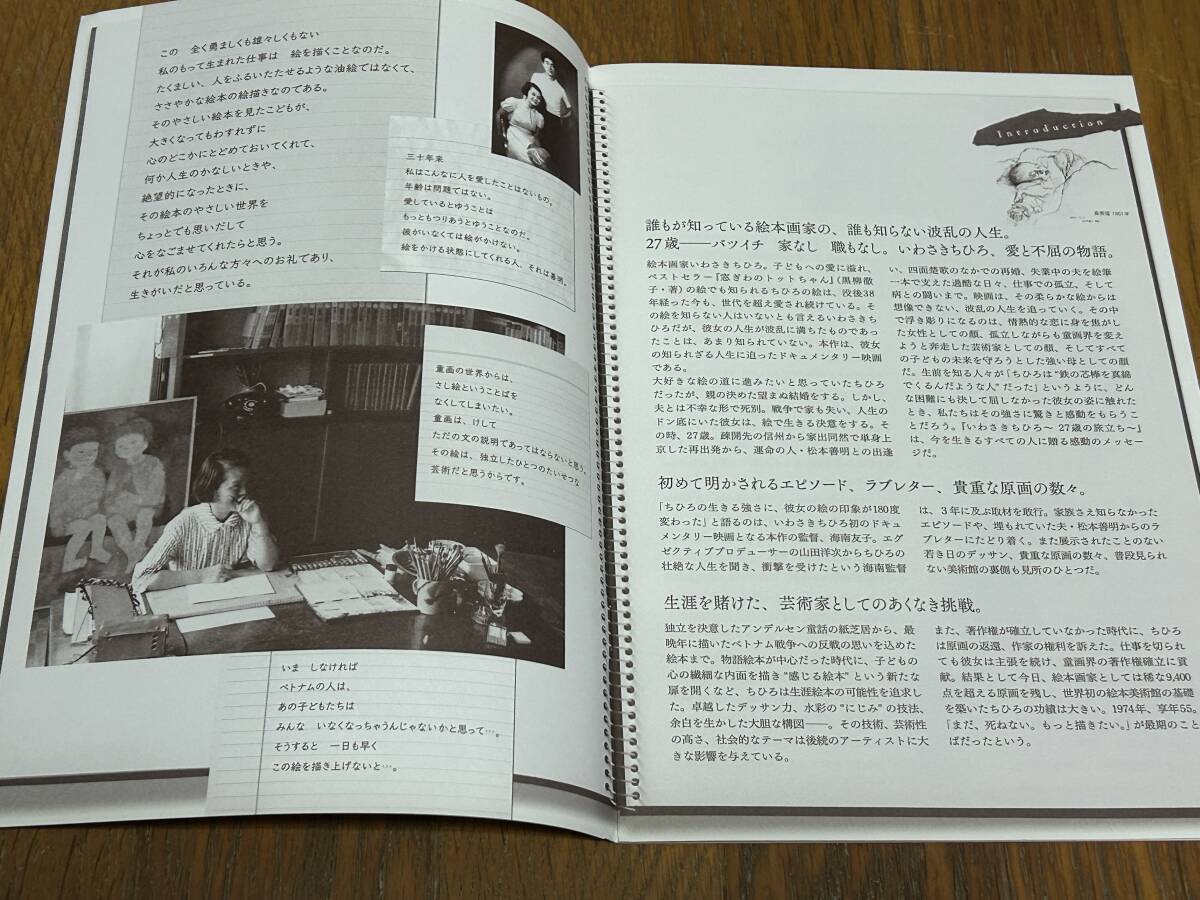 この　全く勇ましくも雄々しくもない
私のもって生まれた仕事は　絵を描くことなのだ。
たくましい、人をふるいたたせるような油絵ではなくて、
ささやかな絵本の絵描きなのである。
そのやさしい絵本を見たこどもが、
大きくなってもわすれずに
心のどこかにとどめておいてくれて、
何か人生のかなしいときや、
絶望的になったときに、
その絵本のやさしい世界を
ちょっとでも思いだして
心をなごませてくれたらと思う。
それが私のいろんな方々へのお礼であり、
生きがいだと思っている。
三十年来
私はこんなに人を愛したことはないもの。
年齢は問題ではない。
愛しているとゆうことは
もっともつりあうとゆうことなのだ。
彼がいなくては絵がかけない。
絵をかける状態にしてくれる人、それは善明。
童画の世界からは、
さし絵ということばを
なくしてしまいたい。
童画は、けして
ただの文の説明であってはならないと思う。
その絵は、独立したひとつのたいせつな
芸術だと思うからです。
いま　しなければ
ベトナムの人は、
あの子どもたちは
みんな　いなくなっちゃうんじゃないかと思って…。
そうすると　一日も早く
この絵を描き上げないと…。
Introduction
長男猛 1951年
誰もが知っている絵本画家の、誰も知らない波乱の人生。
27歳――バツイチ　家なし　職もなし。いわさきちひろ、愛と不屈の物語。
絵本画家いわさきちひろ。子どもへの愛に溢れ、
ベストセラー『窓ぎわのトットちゃん』（黒柳徹
子・著）の絵でも知られるちひろの絵は、没後38
年経った今も、世代を超え愛され続けている。そ
の絵を知らない人はいないとも言えるいわさきち
ひろだが、彼女の人生が波乱に満ちたものであっ
たことは、あまり知られていない。本作は、彼女
の知られざる人生に迫ったドキュメンタリー映画
である。
大好きな絵の道に進みたいと思っていたちひろ
だったが、親の決めた望まぬ結婚をする。しかし、
夫とは不幸な形で死別。戦争で家も失い、人生の
ドン底にいた彼女は、絵で生きる決意をする。そ
の時、27歳。疎開先の信州から家出同然で単身上
京した再出発から、運命の人・松本善明との出逢
い、四面楚歌のなかでの再婚、失業中の夫を絵筆
一本で支えた過酷な日々、仕事での孤立、そして
病との闘いまで。映画は、その柔らかな絵からは
想像できない、波乱の人生を追っていく。その中
で浮き彫りになるのは、情熱的な恋に身を焦がし
た女性としての顔、孤立しながらも童画界を変え
ようと奔走した芸術家としての顔、そしてすべて
の子どもの未来を守ろうとした強い母としての顔
だ。生前を知る人々が「ちひろは“鉄の芯棒を真綿
でくるんだような人”だった」というように、どん
な困難にも決して屈しなかった彼女の姿に触れた
とき、私たちはその強さに驚きと感動をもらうこ
とだろう。『いわさきちひろ～27歳の旅立ち～』
は、今を生きるすべての人に贈る感動のメッセー
ジだ。
初めて明かされるエピソード、ラブレター、貴重な原画の数々。
「ちひろの生きる強さに、彼女の絵の印象が180度
変わった」と語るのは、いわさきちひろ初のドキュ
メンタリー映画となる本作の監督、海南友子。エグ
ゼクティブプロデューサーの山田洋次からちひろの
壮絶な人生を聞き、衝撃を受けたという海南監督
は、3年に及ぶ取材を敢行。家族さえ知らなかった
エピソードや、埋もれていた夫・松本善明からのラ
ブレターにたどり着く。また展示されたことのない
若き日のデッサン、貴重な原画の数々、普段見られ
ない美術館の裏側も見所のひとつだ。
生涯を賭けた、芸術家としてのあくなき挑戦。
独立を決意したアンデルセン童話の紙芝居から、最
晩年に描いたベトナム戦争への反戦の思いを込めた
絵本まで。物語絵本が中心だった時代に、子どもの
心の繊細な内面を描き“感じる絵本”という新たな
扉を開くなど、ちひろは生涯絵本の可能性を追求し
た。卓越したデッサン力、水彩の“にじみ”の技法、
余白を生かした大胆な構図――。その技術、芸術性
の高さ、社会的なテーマは後続のアーティストに大
きな影響を与えている。
また、著作権が確立していなかった時代に、ちひろ
は原画の返還、作家の権利を訴えた。仕事を切られ
ても彼女は主張を続け、童画界の著作権確立に貢
献。結果として今日、絵本画家としては稀な9,400
点を超える原画を残し、世界初の絵本美術館の基礎
を築いたちひろの功績は大きい。1974年、享年55。
「まだ、死ねない。もっと描きたい。」が最期のこと
ばだったという。